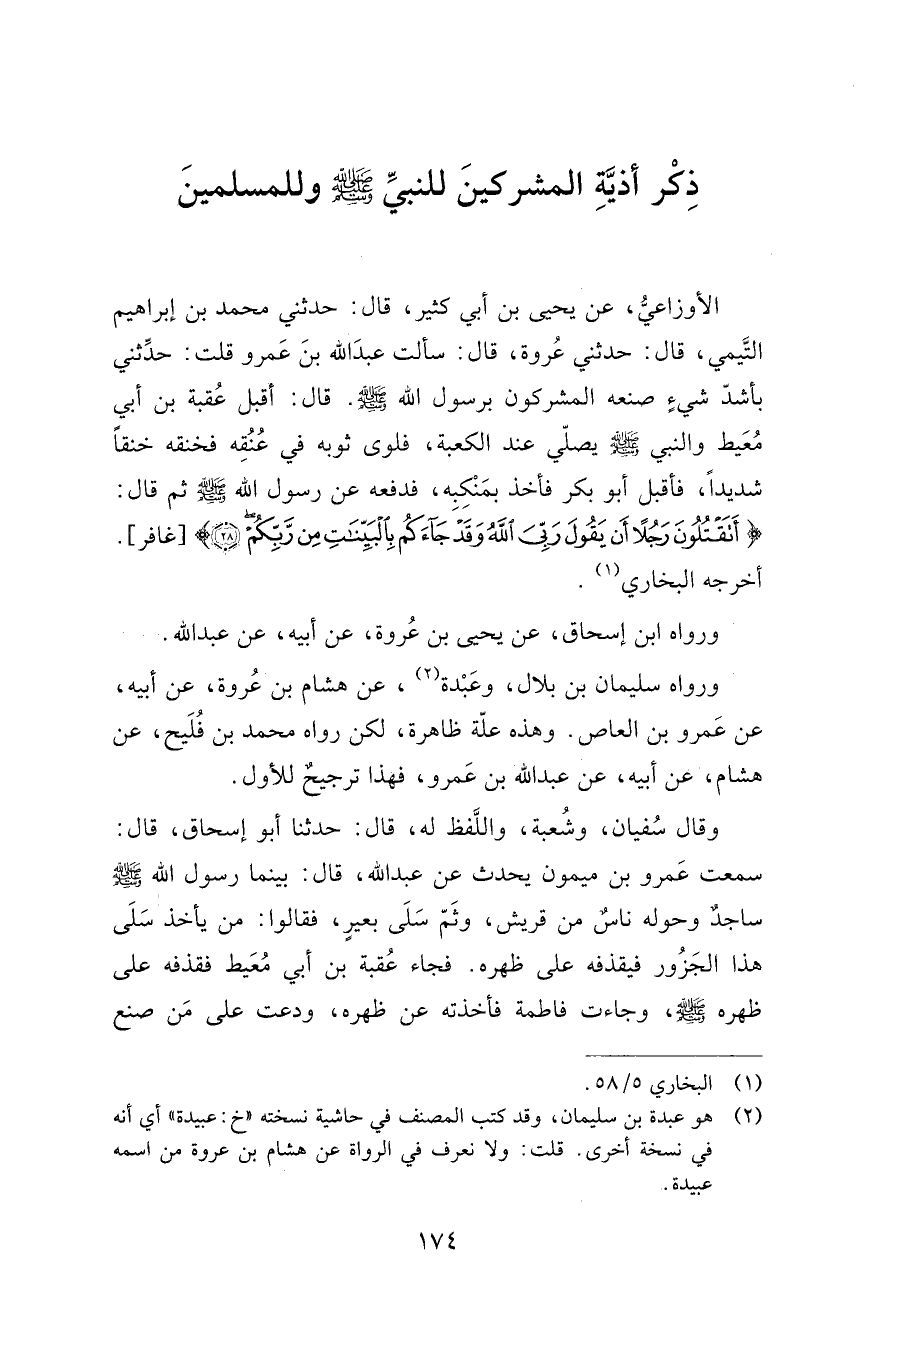 ذِكْر أذيَّةِ المشركينَ للنبيِّ ﷺ وللمسلمينَ
الأوزاعيُّ، عن يحيى بن أبي كثير، قال: حدثني محمد بن إبراهيم
التَّيمي، قال: حدثني عُروة، قال: سألت عبدَالله بنَ عَمرو قلت: حدِّثني
بأشدّ شيءٍ صنعه المشركون برسول الله ﷺ. قال: أقبل عُقبة بن أبي
مُعَيط والنبي ﷺ يصلّي عند الكعبة، فلوى ثوبه في عُنُقِه فخنقه خنقاً
شديداً، فأقبل أبو بكر فأخذ بمَنْكِبِه، فدفعه عن رسول الله ﷺ ثم قال:
﴿أَتَقْتُلُونَ رَجُلًا أَن يَقُولَ رَبِّيَ ٱللَّهُ وَقَدْ جَآءَكُم بِٱلْبَيِّنَٰتِ مِن رَّبِّكُمْ ۖ ٢٨﴾ [غافر].
أخرجه البخاري(١) .
ورواه ابن إسحاق، عن يحيى بن عُروة، عن أبيه، عن عبدالله.
ورواه سليمان بن بلال، وعَبْدة(٢) ، عن هشام بن عُروة، عن أبيه،
عن عَمرو بن العاص. وهذه علّة ظاهرة، لكن رواه محمد بن فُلَيح، عن
هشام، عن أبيه، عن عبدالله بن عَمرو، فهذا ترجيحٌ للأول.
وقال سُفيان، وشُعبة، واللَّفظ له، قال: حدثنا أبو إسحاق، قال:
سمعت عَمرو بن ميمون يحدث عن عبدالله، قال: بينما رسول الله ﷺ
ساجدٌ وحوله ناسٌ من قريش، وثَمّ سَلَى بعيرٍ، فقالوا: من يأخذ سَلَى
هذا الجَزُور فيقذفه على ظهره. فجاء عُقبة بن أبي مُعَيط فقذفه على
ظهره ﷺ، وجاءت فاطمة فأخذته عن ظهره، ودعت على مَن صنع
(١) البخاري ٥/ ٥٨.
(٢) هو عبدة بن سليمان، وقد كتب المصنف في حاشية نسخته «خ: عبيدة» أي أنه
في نسخة أخرى. قلت: ولا نعرف في الرواة عن هشام بن عروة من اسمه
عبيدة.
١٧٤